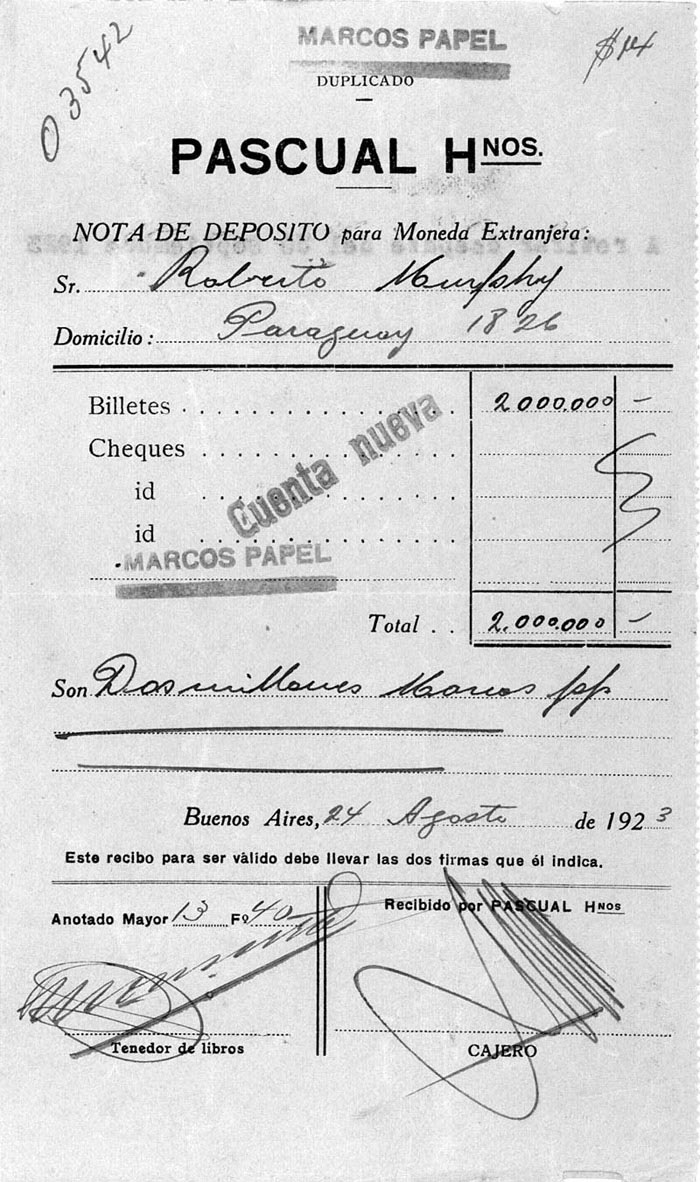 03542
MARCOS PAPEL
DUPLICADO
PASCUAL HNOS.
NOTA DE DEPOSITO para Moneda Extranjera:
Sr. Roberto Murphy
Domicilio: Paraguay 1826
Billetes 2000.000 -
Cheques
id
id
Cuenta nueva
MARCOS PAPEL
Total 2.000.000 -
Son Dos millones Marcos p/p
Buenos Aires, 24 Agosto de 1923
Este recibo para ser válido debe llevar las dos firmas que él indica.
Anotado Mayor 13 Fº 40
Recibido por PASCUAL HNOS
Tenedor de libros
CAJERO